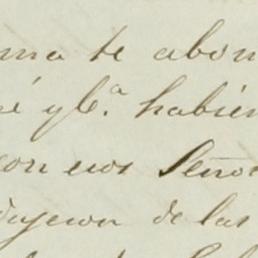 ma te abon
é y Cª. habién
con esos Seño
dujeron de las